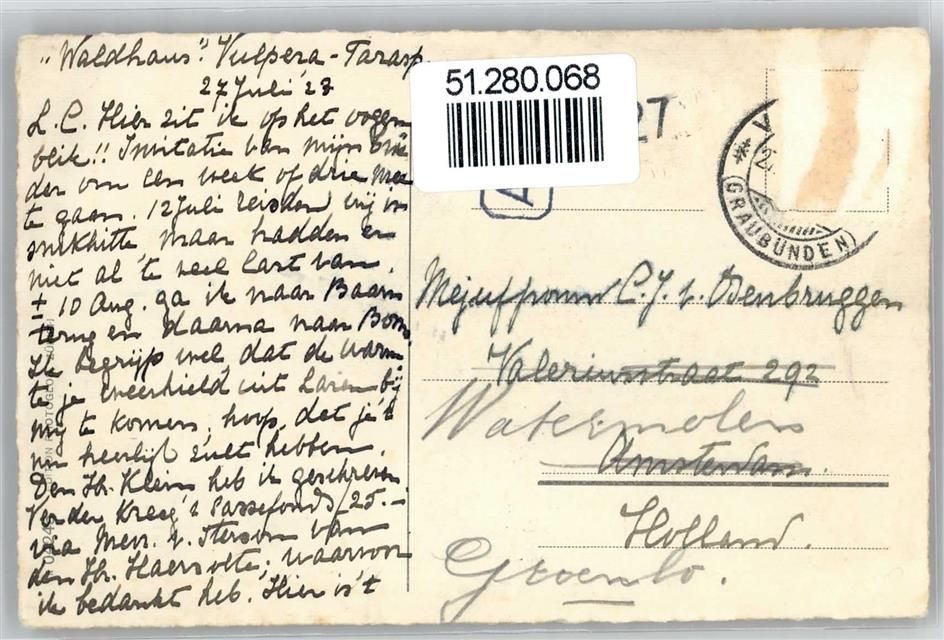 "Waldhaus". Vulpera-Tarasp
27 Juli '23
L. C. Hier zit ik op het oogen
blik!! Invitatie van mijn
der om een week of drie mee
te gaan. 12 Juli reisden wij in
snikhitte, maar hadden er
niet al te veel last van.
± 10 Aug. ga ik naar Baarn
terug en daarna naar
Ik begrijp wel, dat de warm
te je weerhield uit Laren bij
mij te komen, hoop, dat je 't
nu heerlijk zult hebben.
Den Hr. Klein heb ik geschreven
Verder kreeg 't 25.-
via Mevr. v. van
den Hr. Haersolte, waarvoor
ik bedankt heb. Hier is 't
51.280.068
27
(GRAUBÜNDEN)
Mejuffrouw C. J. v. Osenbruggen
Valeriusstraat 292
Watermolen
Amsterdam.
Holland.
Groenlo.